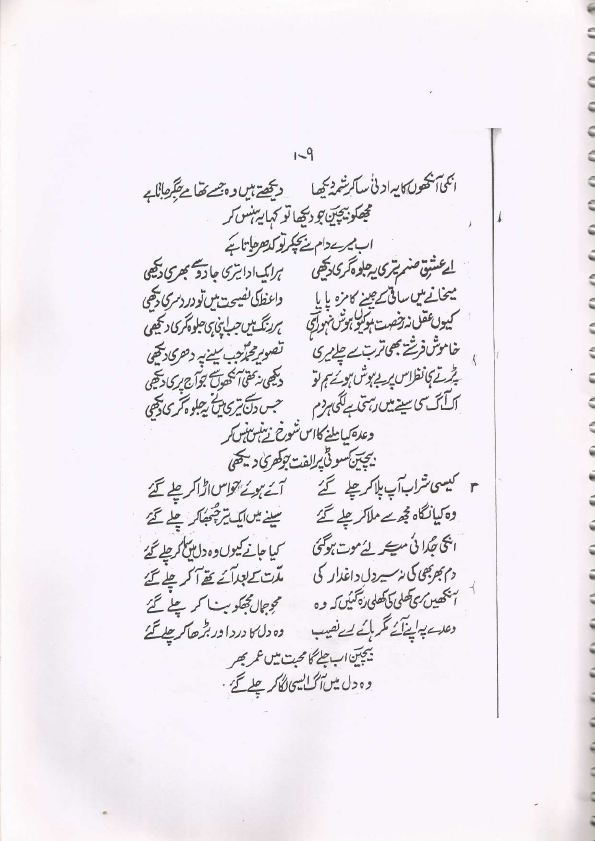 ۱۰۹
انکی آنکھوں کا یہ ادنیٰ سا کرشمہ دیکھا دیکھتے ہیں وہ جسے تھامے جگر جاتا ہے
مجھکو بیچین جو دیکھا تو کہا یہ ہنس کر
اب میرے دام سے بچکر تو کدھر جاتا ہے
اے عشق صنم تیری یہ جلوہ گری دیکھی ہر ایک ادا تیری جادو سے بھری دیکھی
میخانے میں ساقی کے جینے کا مزہ پایا واعظ کی نصیحت میں تو درد سری دیکھی
کیوں عقل نہ رخصت ہو کیوں ہوش نہوں آسی ہر رنگ میں جب اپنی ہی جلوہ گری دیکھی
خاموش فرشتے بھی تربت سے چلے میری تصویر محمدؐ جب سینے پہ دھری دیکھی
پڑتے ہی نظر اس پر بے ہوش ہوئے ہم تو دیکھی نہ تھی آنکھوں سے جو آج پری دیکھی
اک آگ سی سینے میں رہتی ہے لگی ہر دم جس دن سے تیری میں نے یہ جلوہ گری دیکھی
وعدہ کیا ملنے کا اس شوخ نے ہنس ہنس کر
بیچین کسوٹی پر الفت جو کھری دیکھی
۳ کیسی شراب آپ پلا کر چلے گئے آئے ہوئے حواس اڑا کر چلے گئے
وہ کیا نگاہ مجھ سے ملا کر چلے گئے سینے میں ایک تیر چُبھا کر چلے گئے
انکی جدائی میرے لئے موت ہو گئی کیا جانے کیوں وہ دل میں سما کر چلے گئے
دم بھر بھی کی نہ سیر دل داغدار کی مدت کے بعد آئے تھے آ کر چلے گئے
آنکھیں مری کھلی کی کھلی رہ گئیں کہ وہ محو جمال مجھکو بنا کر چلے گئے
وعدے پہ اپنے آئے مگر ہائے رے نصیب وہ دل کا درد اور بڑھا کر چلے گئے
بیچین اب جلے گا محبت میں عمر بھر
وہ دل میں آگ ایسی لگا کر چلے گئے